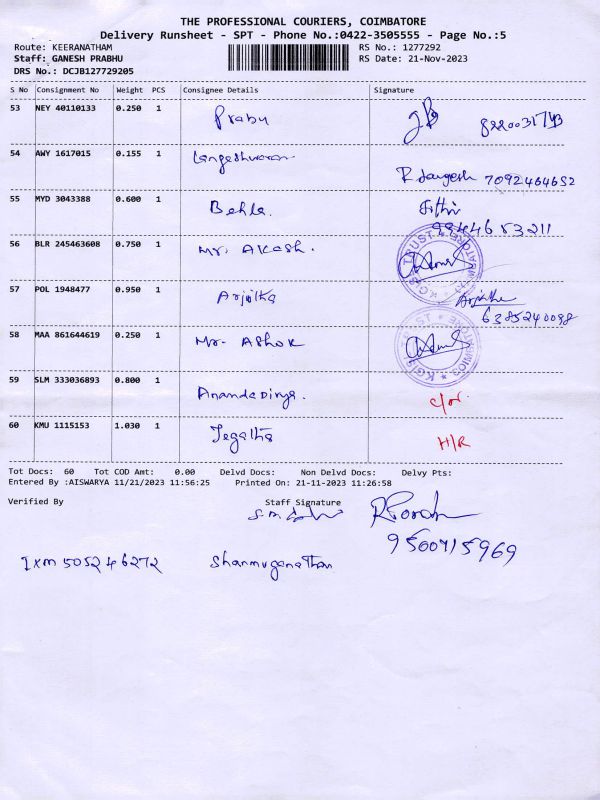 THE PROFESSIONAL COURIERS, COIMBATORE
Delivery Runsheet - SPT - Phone No.:0422-3505555 - Page No.:5
Route: KEERANATHAM RS No.: 1277292
Staff: GANESH PRABHU RS Date: 21-Nov-2023
DRS No.: DCJB127729205
S No Consignment No Weight PCS Consignee Details Signature
53 NEY 40110133 0.250 1 Prabu
54 AWY 1617015 0.155 1 7092464652
55 MYD 3043388 0.600 1 Behla. 9944653211
56 BLR 245463608 0.750 1 Mr. Akash.
57 POL 1948477 0.950 1 Arjitha Arjitha
6385240098
58 MAA 861644619 0.250 1 Mr. Ashok
59 SLM 333036893 0.800 1 Anandadivya.
60 KMU 1115153 1.030 1 Jegatha H/R
Tot Docs: 60 Tot COD Amt: 0.00 Delvd Docs: Non Delvd Docs: Delvy Pts:
Entered By :AISWARYA 11/21/2023 11:56:25 Printed On: 21-11-2023 11:26:58
Verified By Staff Signature
9500715969
IXM 505246272 Shanmuganathan